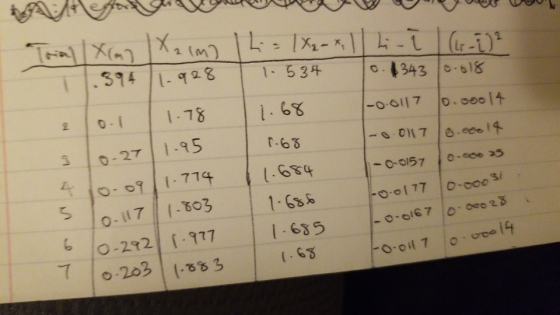 Trial X(m) X₂(m) Li = |X₂-x₁| Li - L̄ (Li-L̄)²
1 .394 1.928 1.534 0.1343 0.018
2 0.1 1.78 1.68 -0.0117 0.00014
3 0.27 1.95 1.68 -0.0117 0.00014
4 0.09 1.774 1.684 -0.0157 0.00025
5 0.117 1.803 1.686 -0.0177 0.00031
6 0.292 1.977 1.685 -0.0167 0.00028
7 0.203 1.883 1.68 -0.0117 0.00014